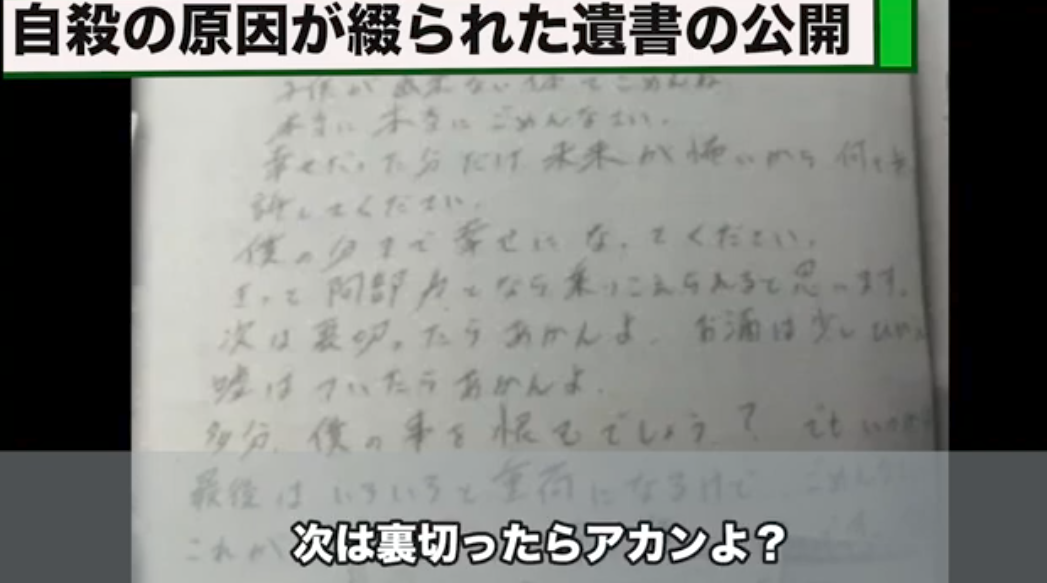 自殺の原因が綴られた遺書の公開
子供が出来ない体でごめんね
本当に本当にごめんなさい。
幸せだった分だけ未来が怖いから
許してください。
僕の分まで幸せになってください。
きっと阿部 となら乗りこえられると思います。
次は裏切ったらあかんよ。お酒は少し
嘘はついたらあかんよ。
多分、僕の事を恨むでしょう?でも
最後はいろいろと重荷になるけど ごめん
これか
次は裏切ったらアカンよ?